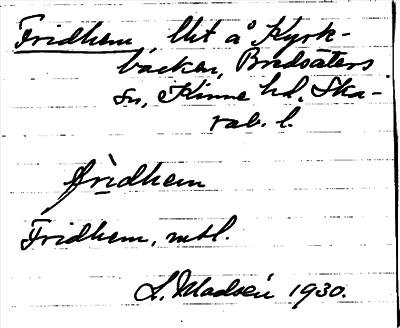 Fridhem, lht å Kyrk-
backen, Bredsäters
sn, Kinne hd, Ska-
rab. l.
frìdhem
Fridhem, mtl.
L. Madsén 1930.